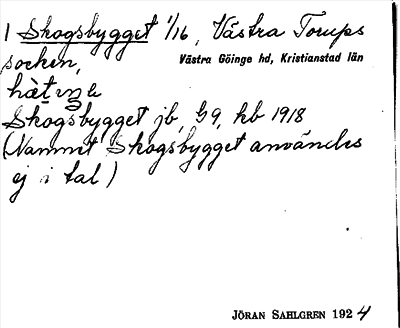 1 Skogsbygget 1/16, Västra Torups
socken, Västra Göinge hd, Kristianstad län
Skogsbygget jb, hb 1918
(Namnet Skogsbygget användes
ej i tal)
JÖRAN SAHLGREN 1924